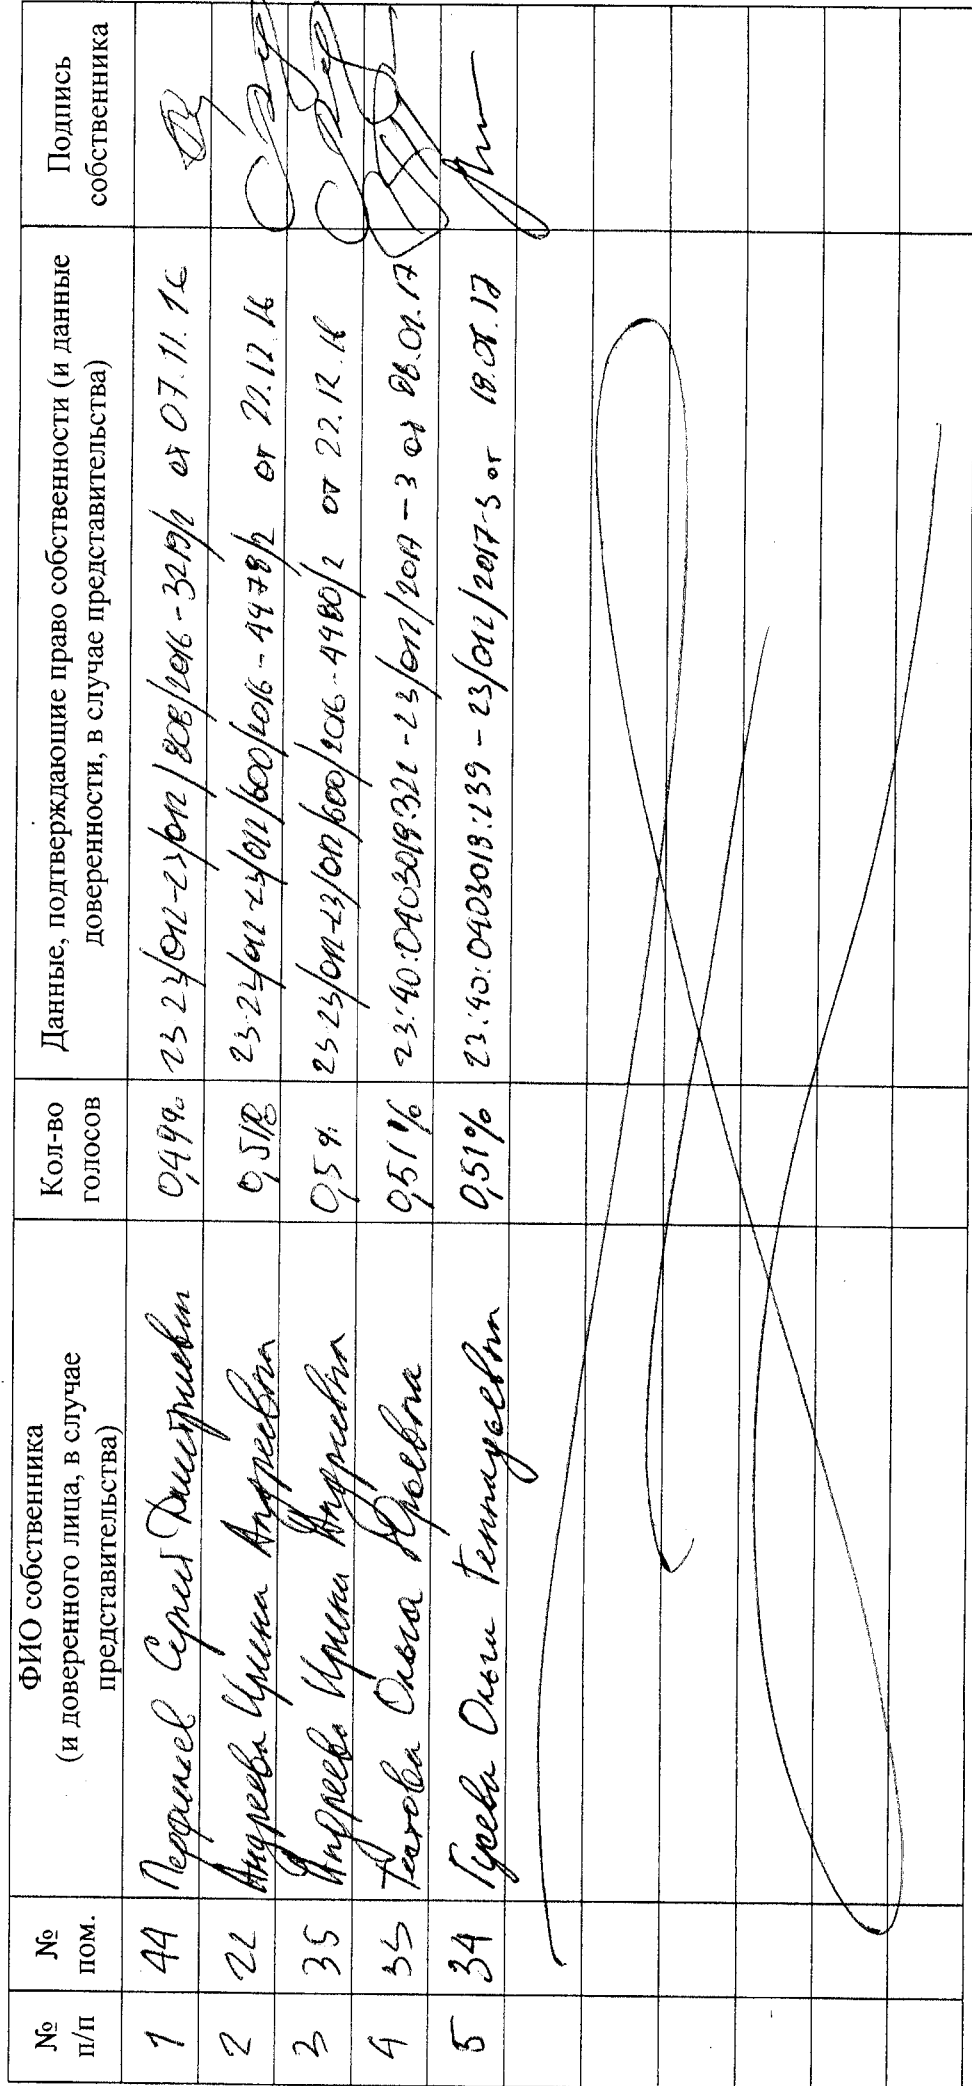 № п/п
№ пом.
ФИО собственника (и доверенного лица, в случае представительства)
Кол-во голосов
Данные, подтверждающие право собственности (и данные доверенности, в случае представительства)
Подпись собственника
1 44 Перфильев Сергей Дмитриевич 0,49% 23-23/012-23/012/808/2016-3219/2 от 07.11.16
2 22 Андреева Ирина Андреевна 23-23/012-23/012/600/2016-4478/2 от 22.12.16
3 35 Андреева Ирина Андреевна 0,5% 23-23/012-23/012/600/2016-4480/2 от 22.12.16
4 Ольга Юрьевна 0,51% 23:40:0403019:322-23/012/2017-3 от
5 34 Гусева Ольга Геннадьевна 0,51% 23:40:0403019:239-23/012/2017-3 от